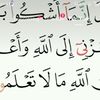 إِنَّمَآ أَشْكُوا۟ بَ
زْنِىٓ إِلَى ٱللَّهِ وَأَعْ
ٱللَّهِ مَا لَا تَعْلَمُو